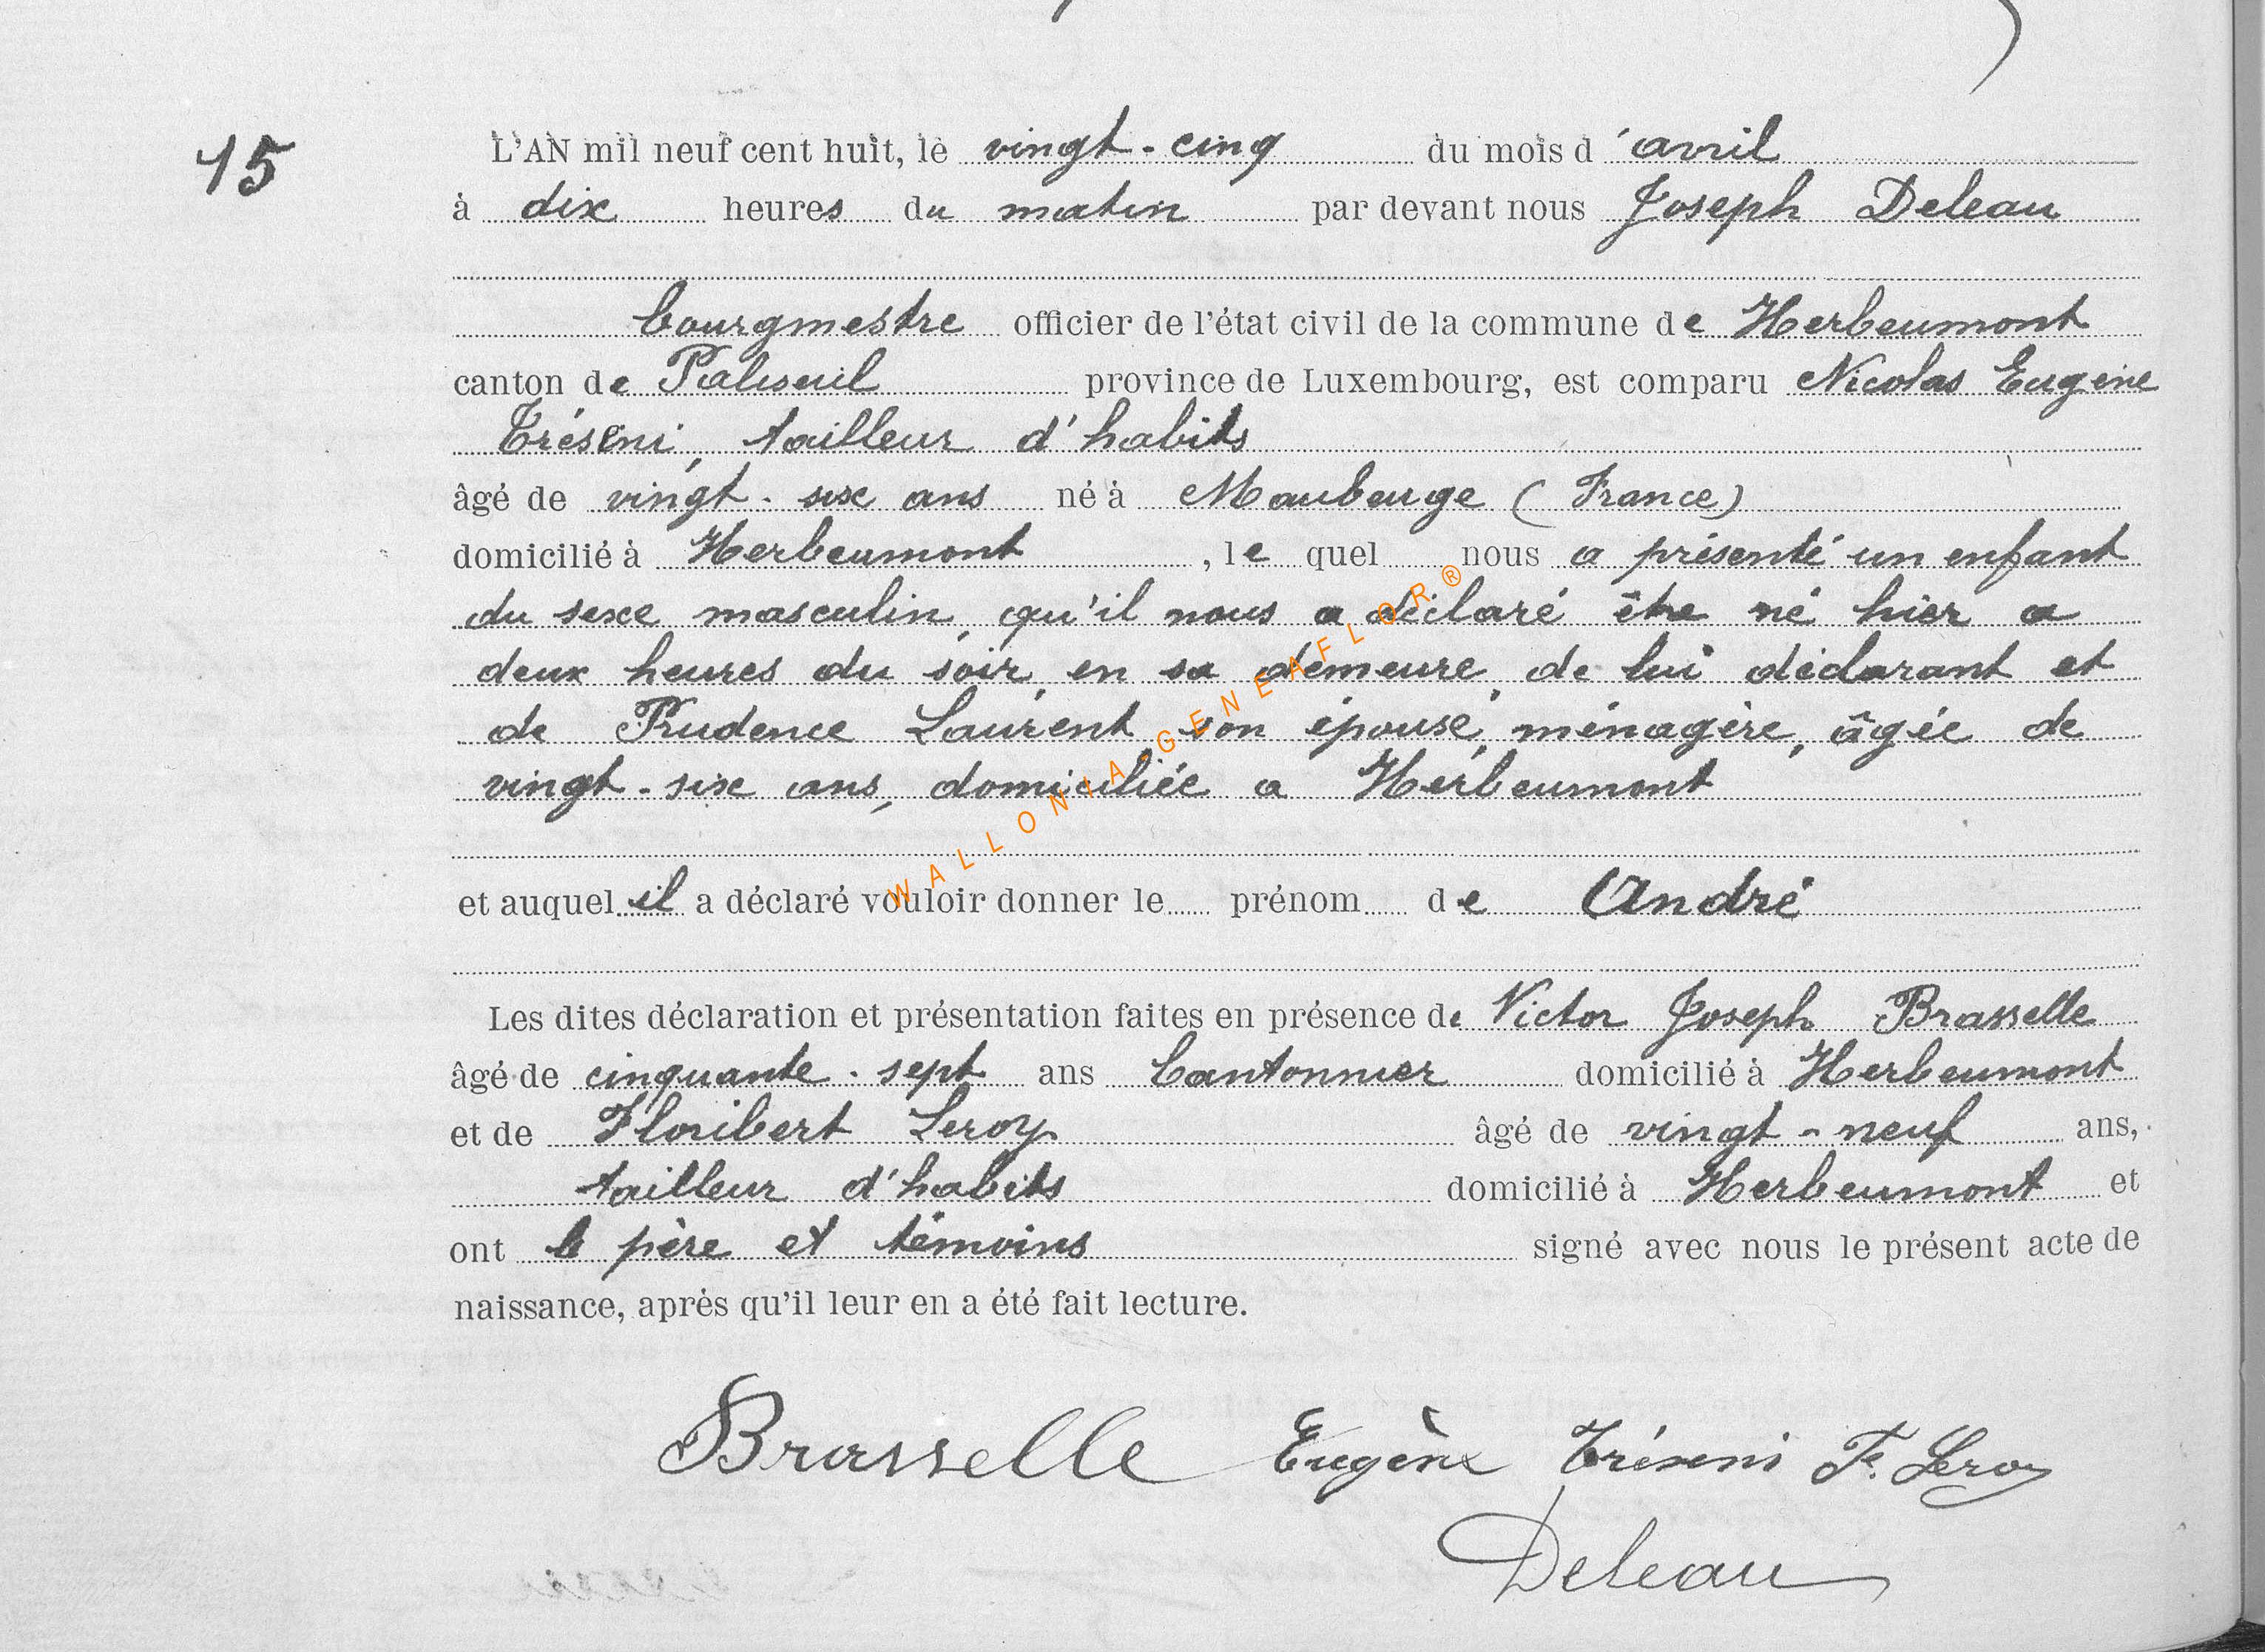 15
L'AN mil neuf cent huit, le vingt-cinq du mois d'avril
à dix heures du matin par devant nous Joseph Deleau
bourgmestre officier de l'état civil de la commune de Herbeumont
canton de Paliseuil province de Luxembourg, est comparu Nicolas Eugène
Tréseni, tailleur d'habits
âgé de vingt-six ans né à Maubeuge (France)
domicilié à Herbeumont, le quel nous a présenté un enfant
du sexe masculin, qu'il nous a déclaré être né hier a
deux heures du soir, en sa demeure, de lui déclarant et
de Prudence Laurent, son épouse, ménagère, âgée de
vingt-six ans, domiciliée a Herbeumont
et auquel il a déclaré vouloir donner le prénom de André
Les dites déclaration et présentation faites en présence de Victor Joseph Brasselle
âgé de cinquante-sept ans Cantonnier domicilié à Herbeumont
et de Floribert Leroy âgé de vingt-neuf ans,
tailleur d'habits domicilié à Herbeumont et
ont le père et témoins signé avec nous le présent acte de
naissance, après qu'il leur en a été fait lecture.
Brasselle Eugène Tréseni F. Leroy
Deleau
WALLONIA-GENEAFLOR®